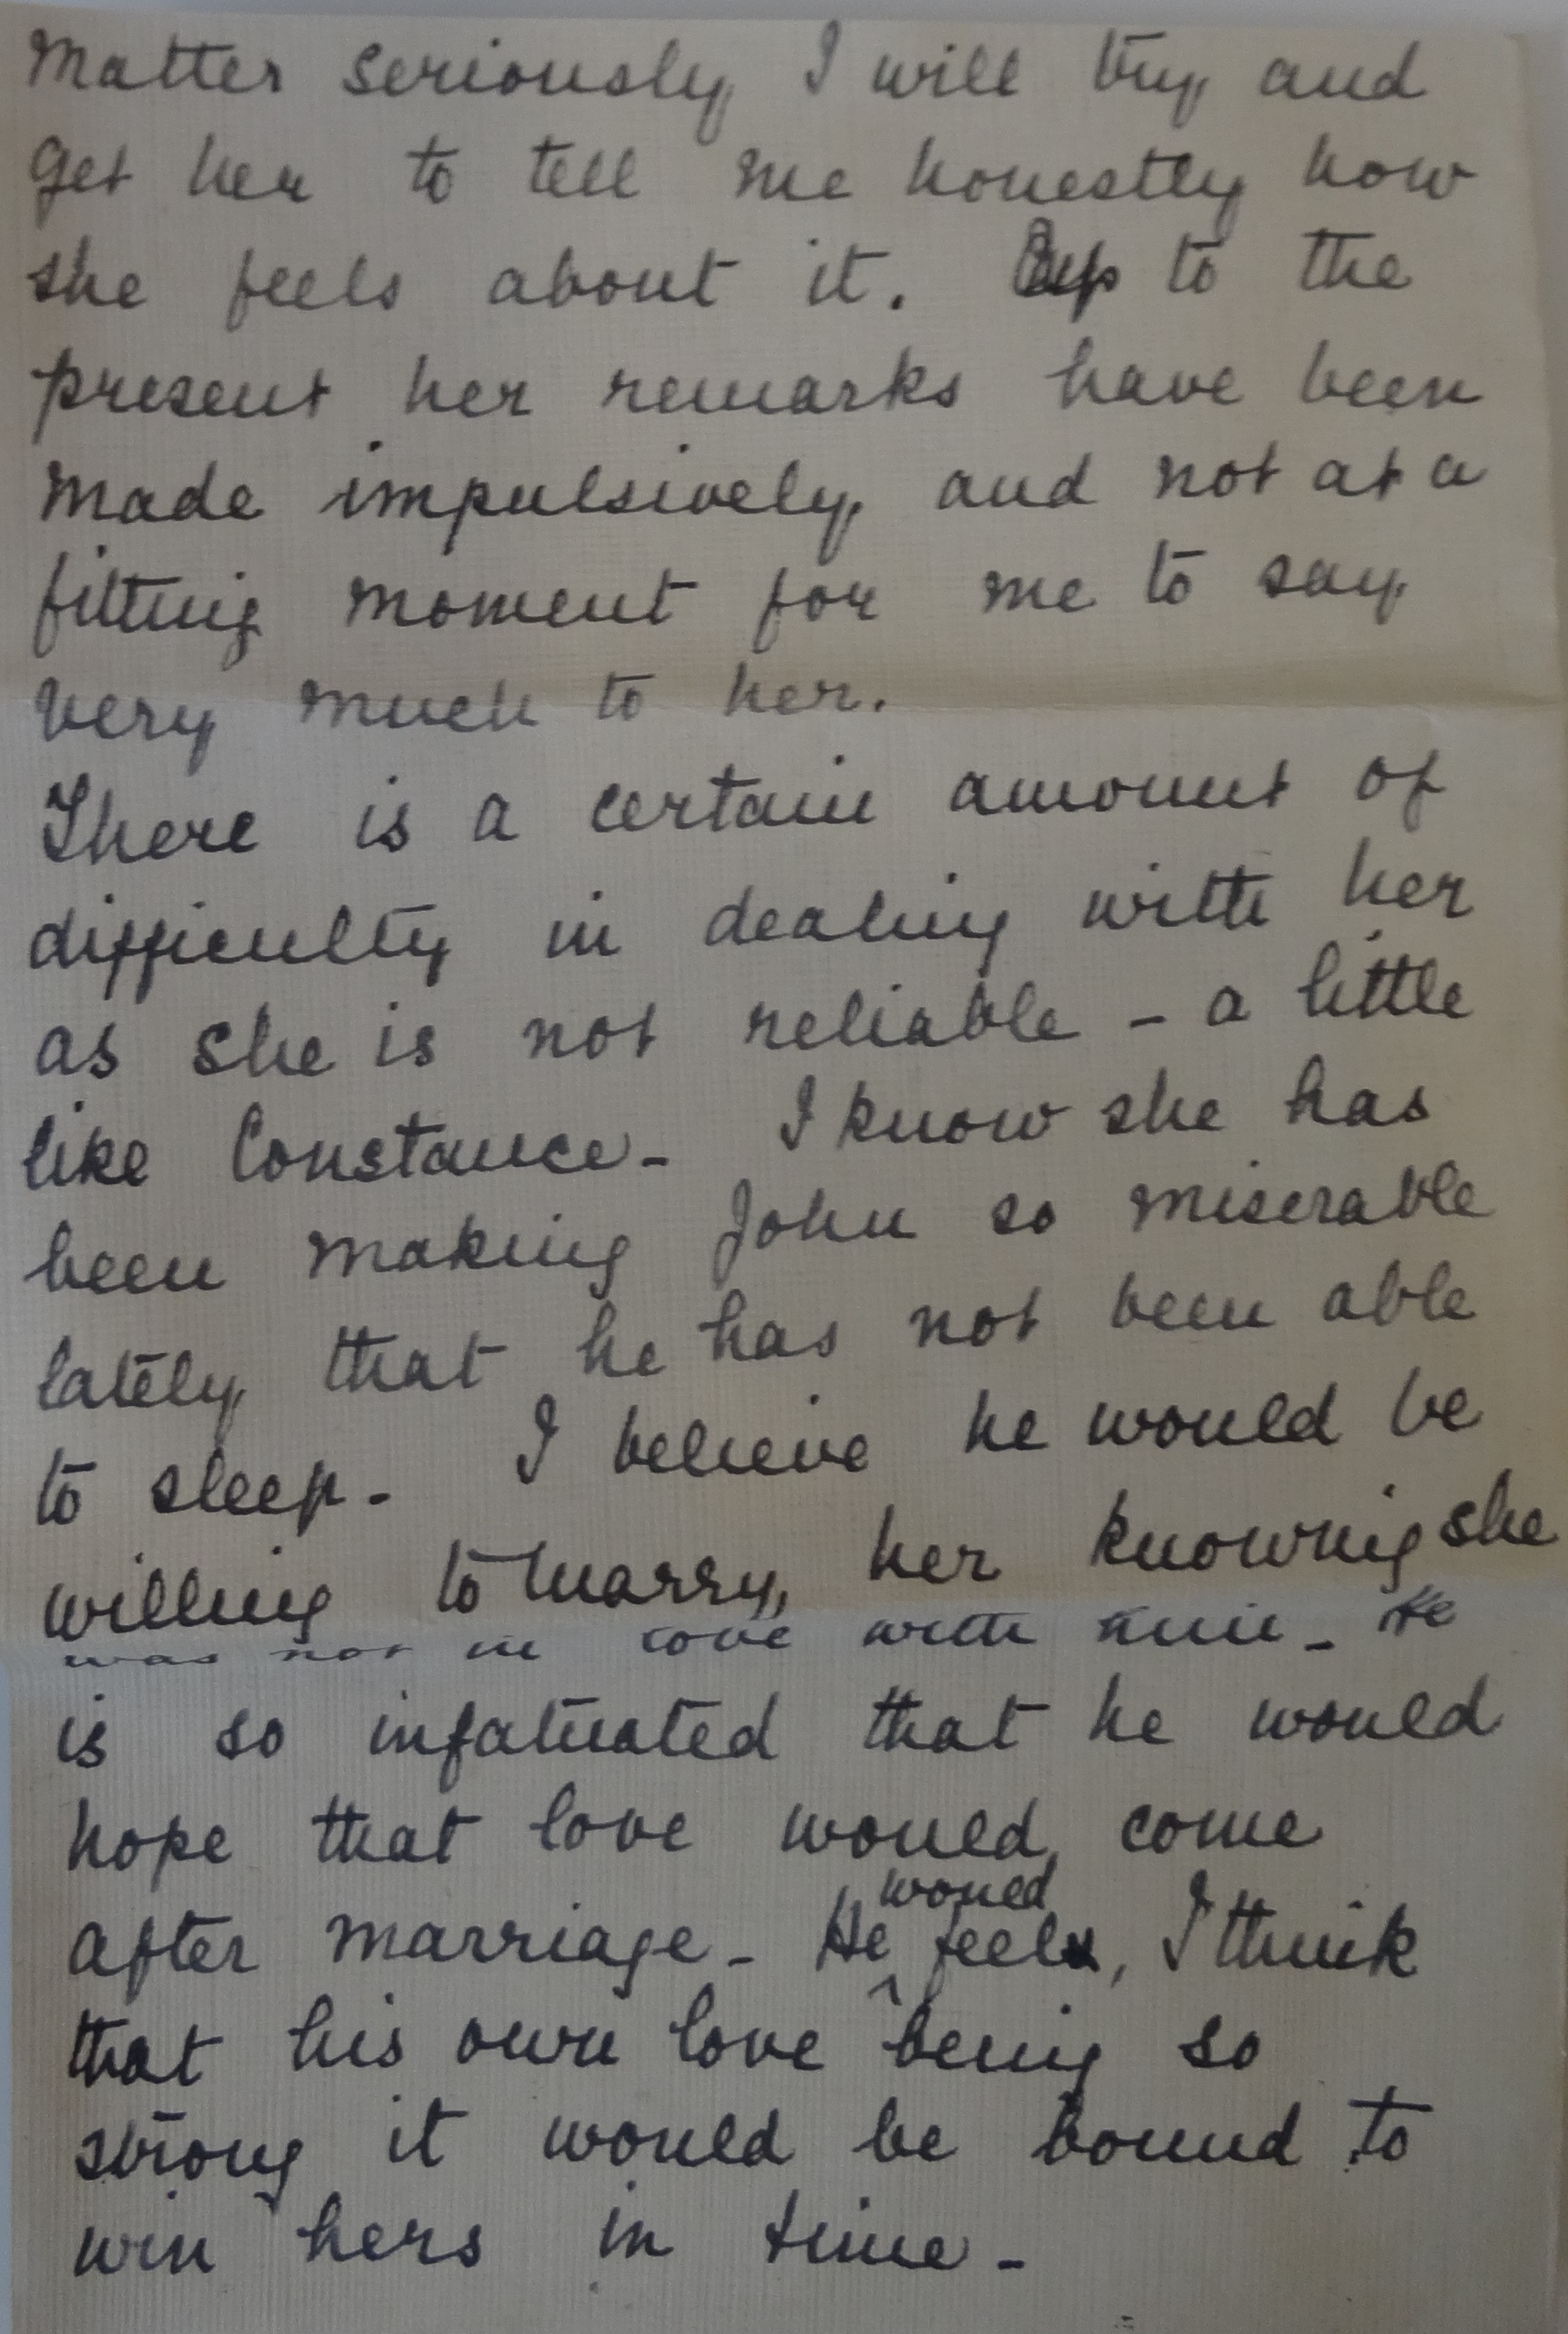 matter seriously, I will try and
get her to tell me honestly how
she feels about it. Up to the
present her remarks have been
made impulsively, and not at a
fitting moment for me to say
very much to her.
There is a certain amount of
difficulty in dealing with her
as she is not reliable - a little
like Constance - I know she has
been making John so miserable
lately, that he has not been able
to sleep - I believe he would be
willing to marry her knowing she
was not in love with him - He
is so infatuated that he would
hope that love would come
after marriage - He would feel, I think
that his own love being so
strong it would be bound to
win hers in time -